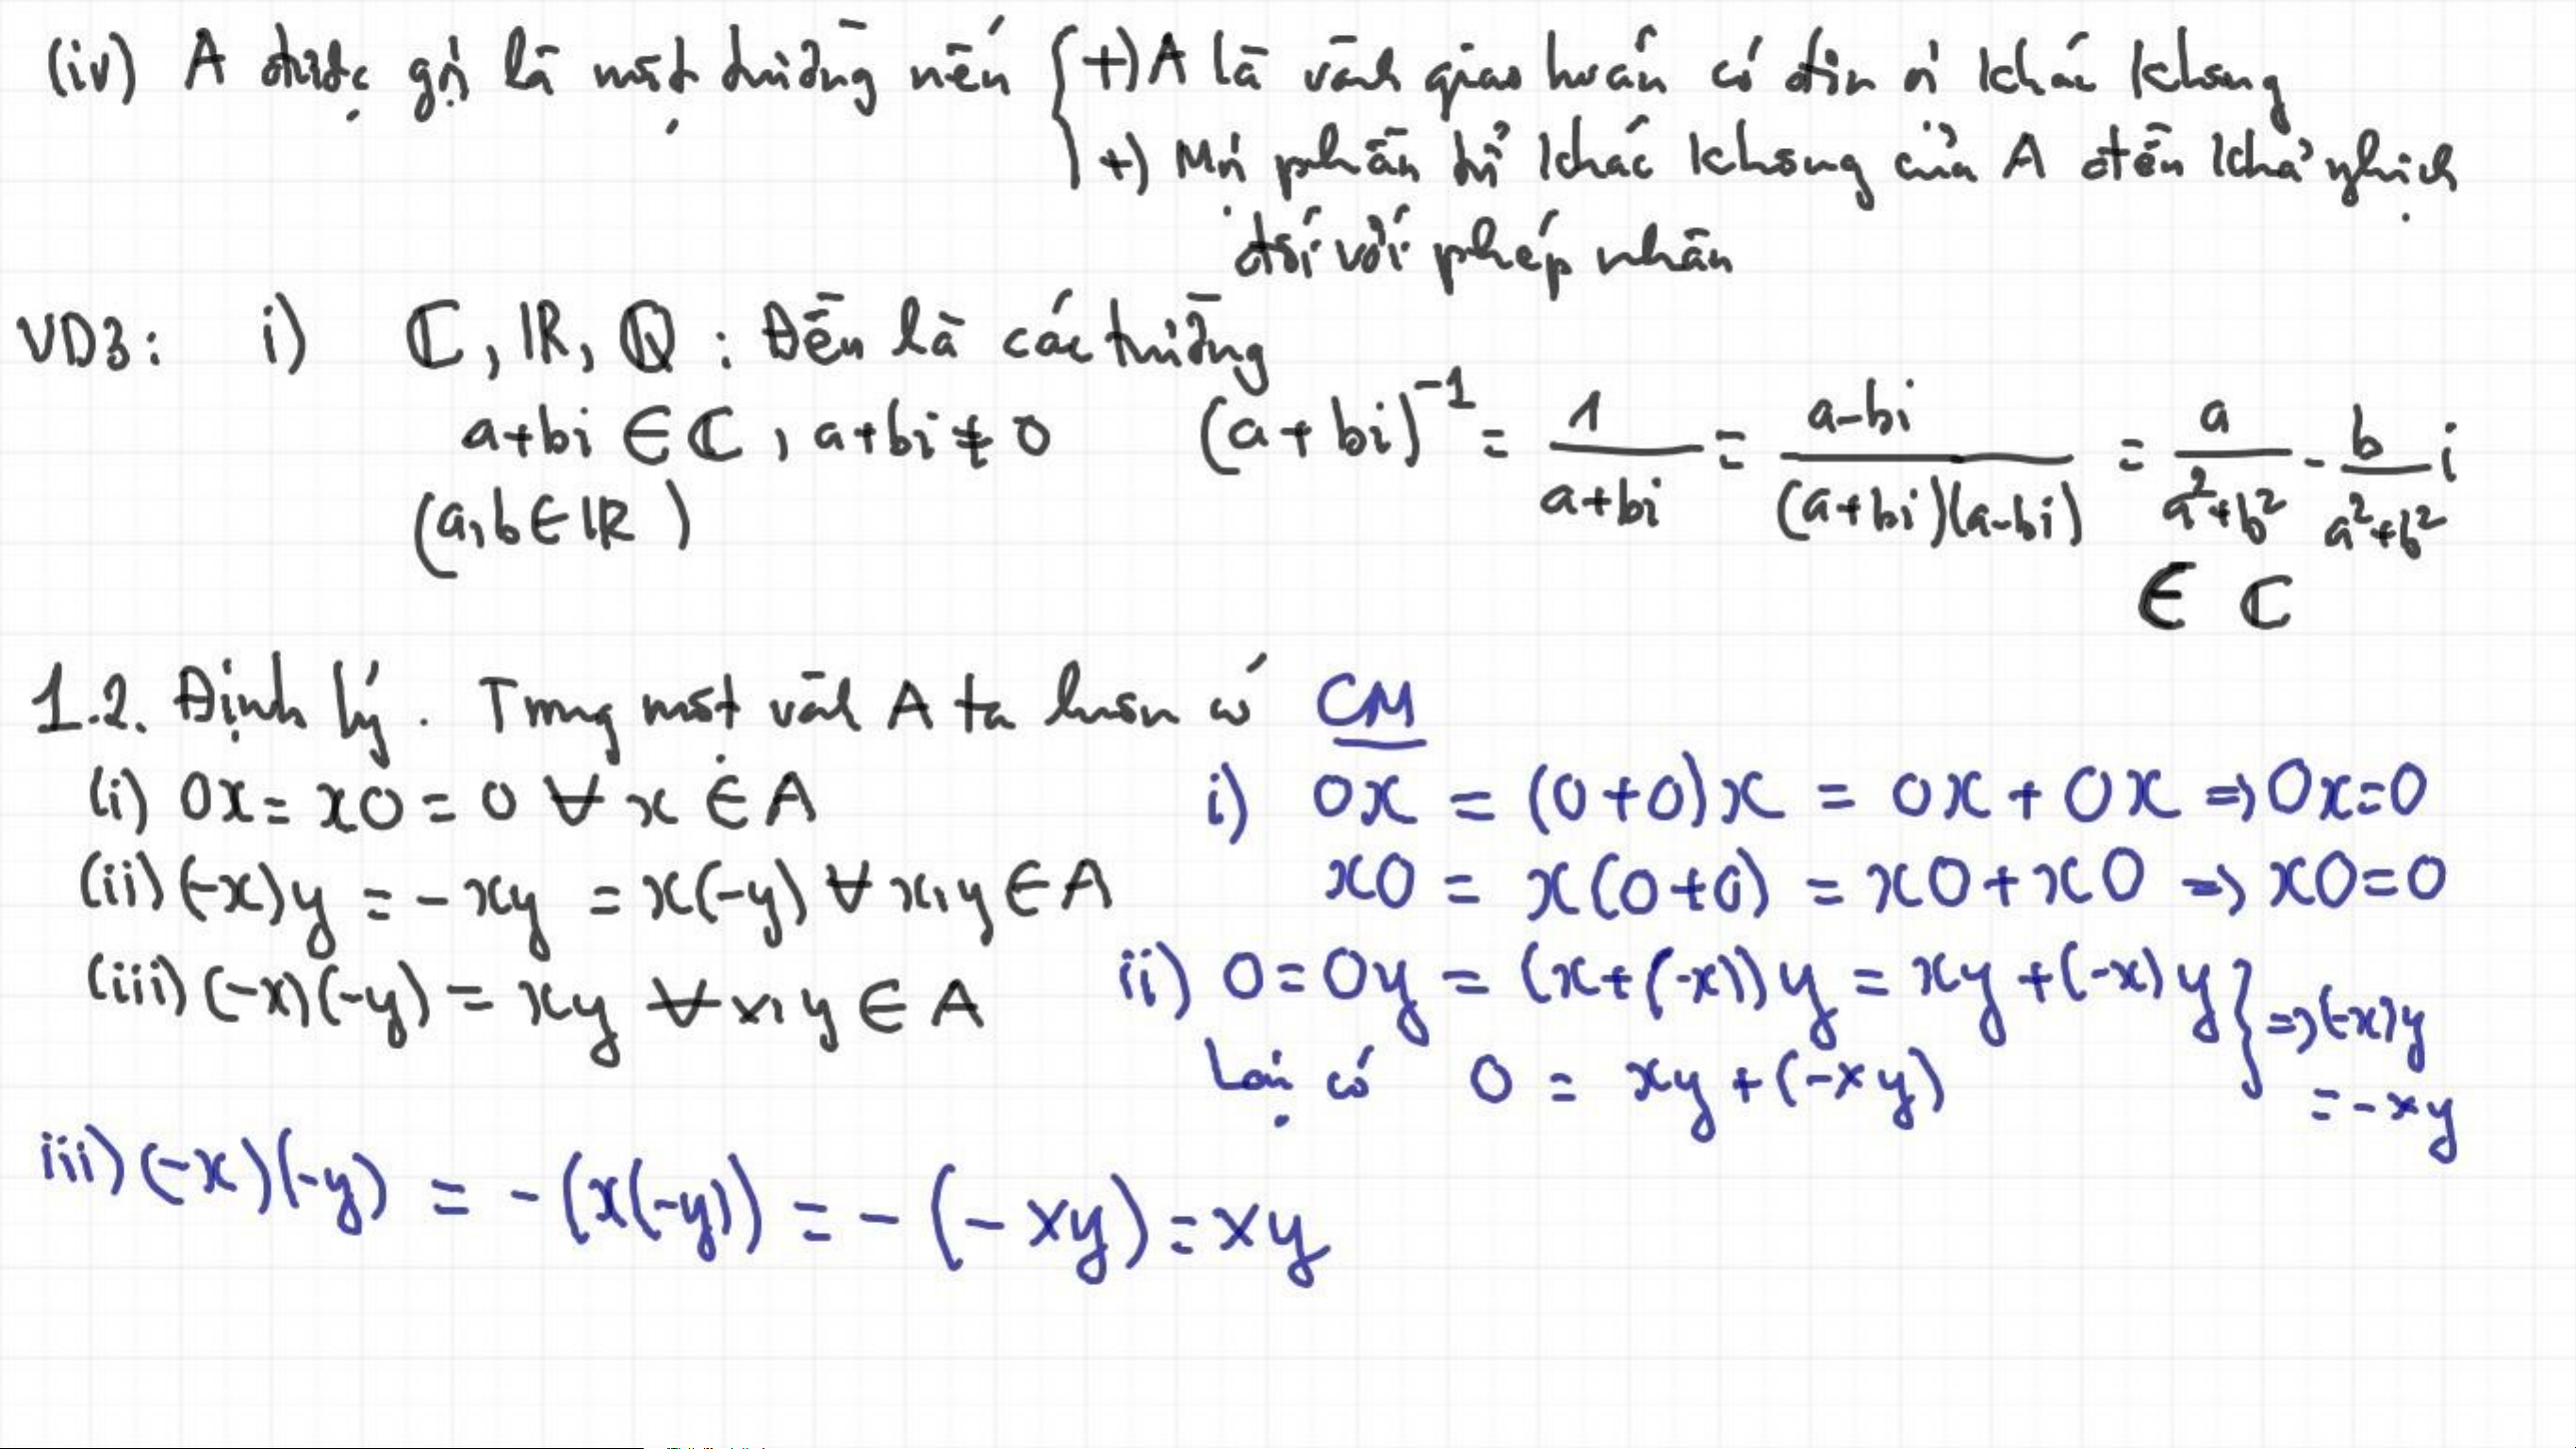 (iv) A được gọi là một trường nếu { +) A là vành giao hoán có đơn vị khác không
+) Mọi phần tử khác không của A đều khả nghịch
đối với phép nhân
VD3: i) ℂ, ℝ, ℚ : Đều là các trường
a+bi ∈ ℂ, a+bi ≠ 0 (a+bi)⁻¹ = 1/(a+bi) = (a-bi)/((a+bi)(a-bi)) = a/(a²+b²) - b/(a²+b²) i
(a,b ∈ ℝ)
∈ ℂ
1.2. Định lý. Trong một vành A ta luôn có
(i) 0x = x0 = 0 ∀ x ∈ A
(ii) (-x)y = -xy = x(-y) ∀ x,y ∈ A
(iii) (-x)(-y) = xy ∀ x,y ∈ A
CM
i) 0x = (0+0)x = 0x + 0x => 0x=0
x0 = x(0+0) = x0+x0 => x0=0
ii) 0=0y = (x+(-x))y = xy+(-x)y } => (-x)y
Lại có 0 = xy+(-xy)
= -xy
iii) (-x)(-y) = -(x(-y)) = -(-xy) = xy